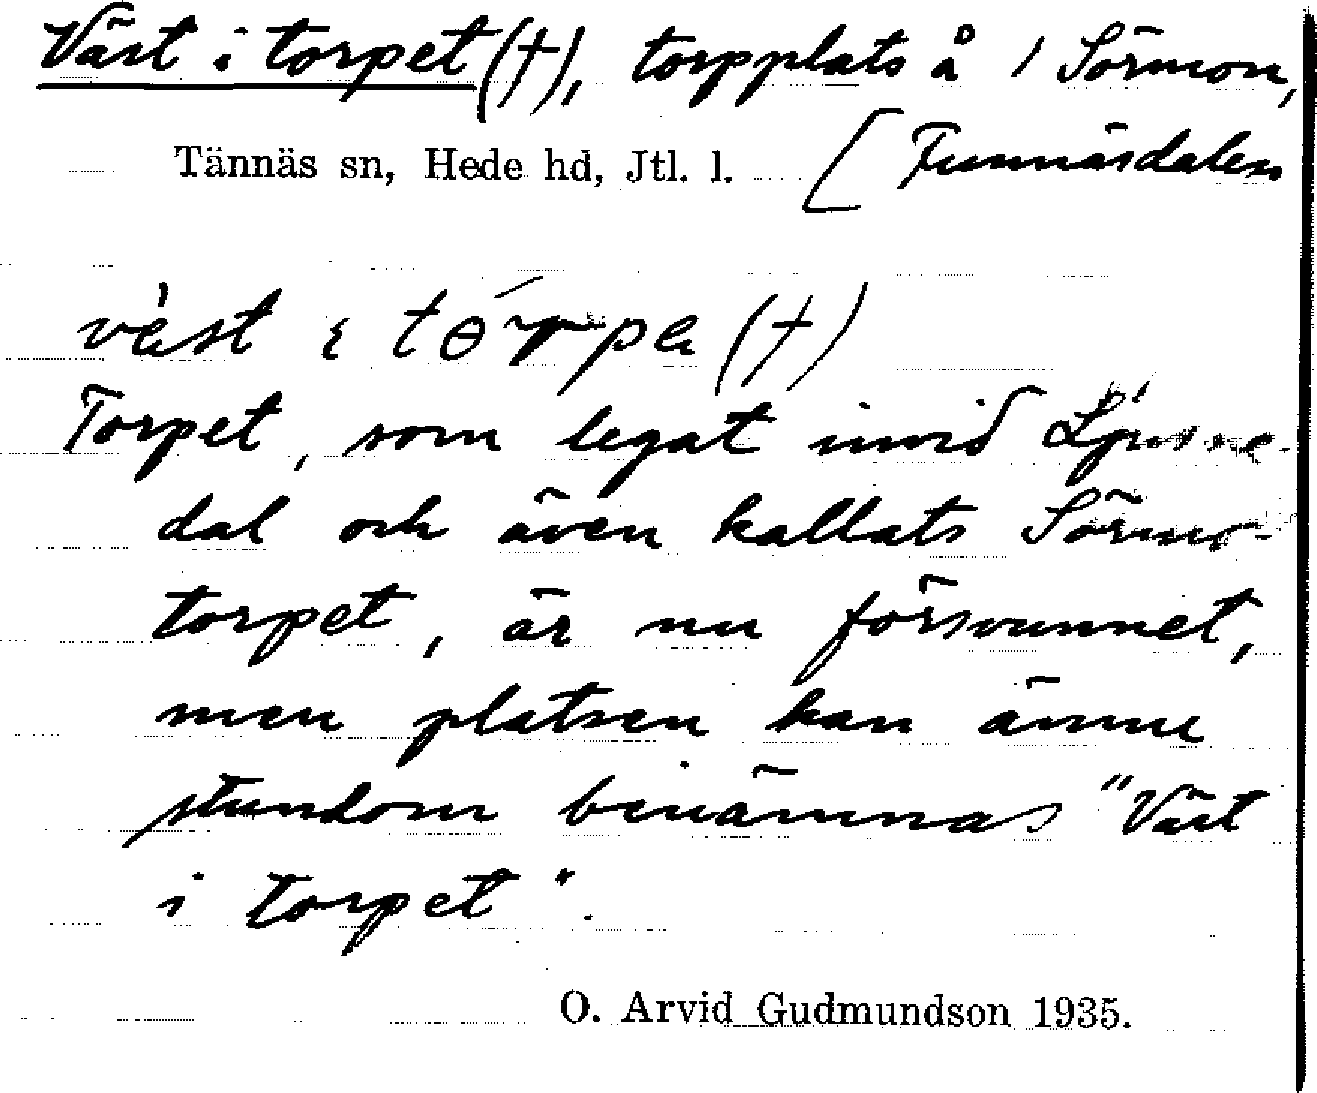 Väst i torpet (†), torpplats å 1 Sörmon,
Tännäs sn, Hede hd, Jtl. l. [ Funnäsdalen
vàst ɩ tɵ́rpa (†)
Torpet, som legat invid Ljusne-
dal och även kallats Sörmo-
torpet, är nu försvunnet,
men platsen kan ännu
stundom benämnas "Väst
i torpet".
O. Arvid Gudmundson 1935.